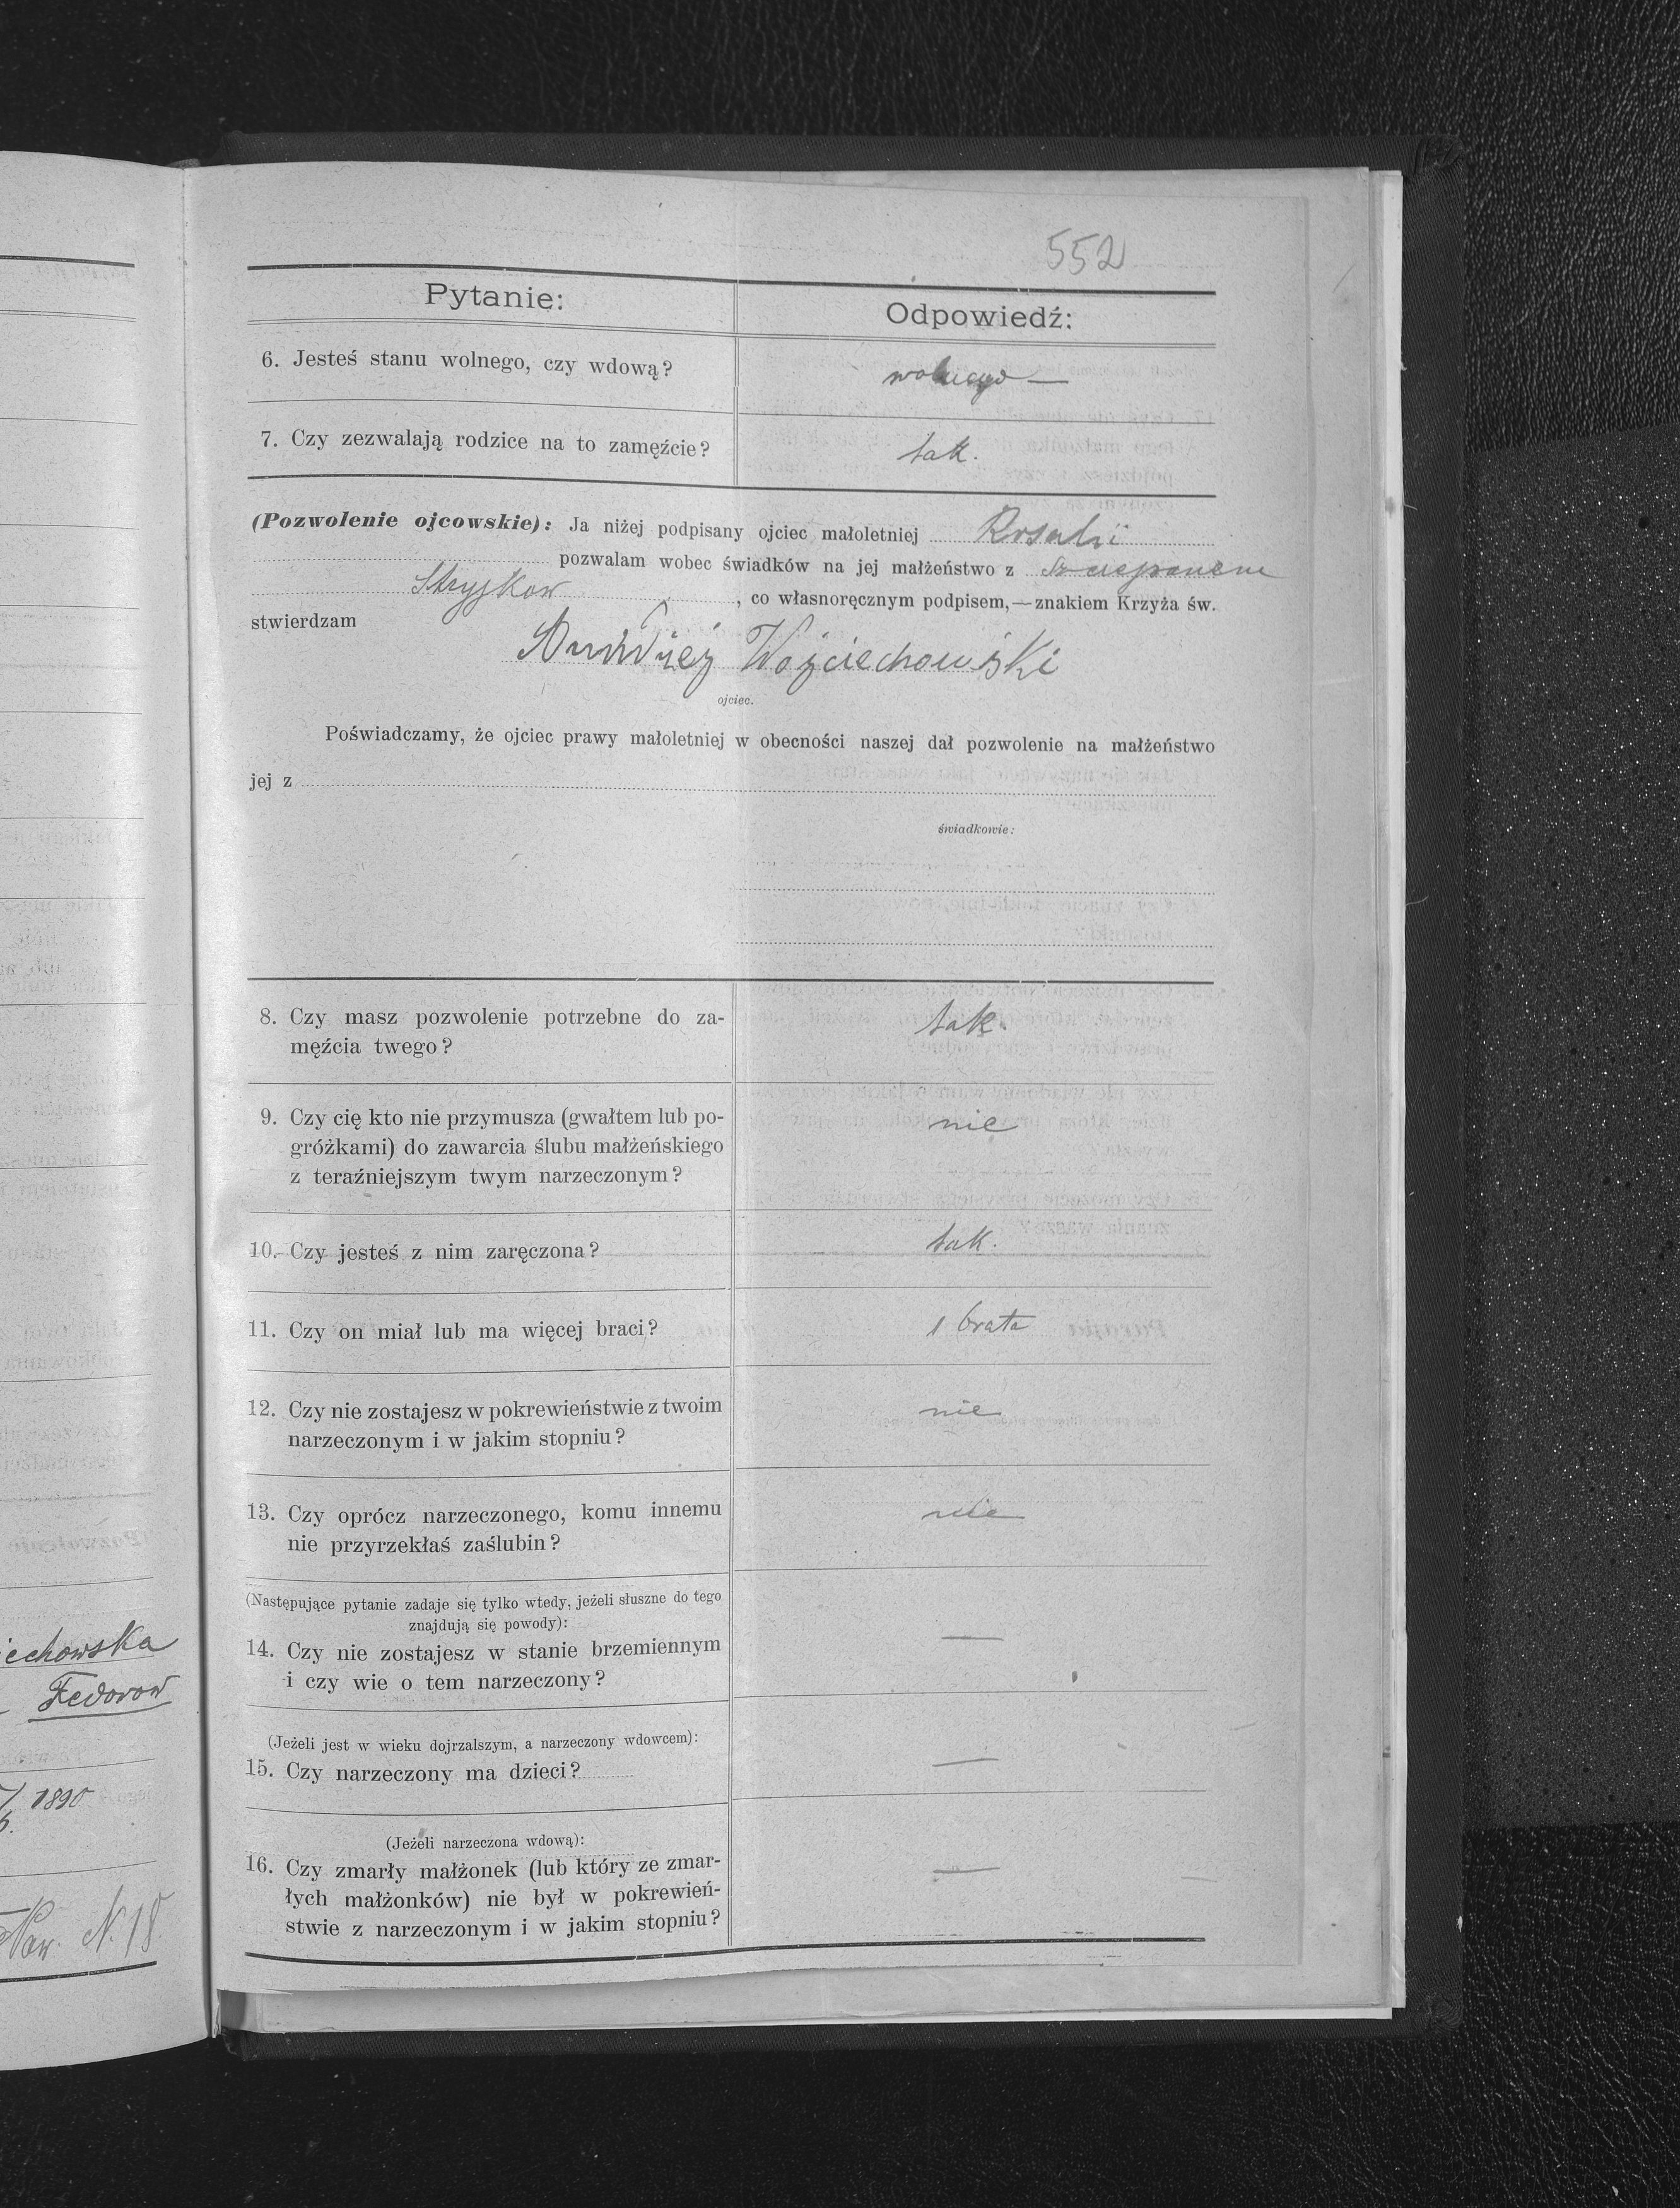 552
Pytanie:
Odpowiedź:
6. Jesteś stanu wolnego, czy wdową?
wolnego —
7. Czy zezwalają rodzice na to zamęźcie?
tak.
(Pozwolenie ojcowskie): Ja niżej podpisany ojciec małoletniej Rosalii
pozwalam wobec świadków na jej małżeństwo z Szczepanem
Stryjkow, co własnoręcznym podpisem,—znakiem Krzyża św.
stwierdzam
Andrzej Wojciechowski
ojciec.
Poświadczamy, że ojciec prawy małoletniej w obecności naszej dał pozwolenie na małżeństwo
jej z
świadkowie:
8. Czy masz pozwolenie potrzebne do za-
męźcia twego?
tak.
9. Czy cię kto nie przymusza (gwałtem lub po-
gróżkami) do zawarcia ślubu małżeńskiego
z teraźniejszym twym narzeczonym?
nie
10. Czy jesteś z nim zaręczona?
tak.
11. Czy on miał lub ma więcej braci?
1 brata
12. Czy nie zostajesz w pokrewieństwie z twoim
narzeczonym i w jakim stopniu?
nie
13. Czy oprócz narzeczonego, komu innemu
nie przyrzekłaś zaślubin?
nie
(Następujące pytanie zadaje się tylko wtedy, jeżeli słuszne do tego
znajdują się powody):
14. Czy nie zostajesz w stanie brzemiennym
i czy wie o tem narzeczony?
—
(Jeżeli jest w wieku dojrzalszym, a narzeczony wdowcem):
15. Czy narzeczony ma dzieci?
—
(Jeżeli narzeczona wdową):
16. Czy zmarły małżonek (lub który ze zmar-
łych małżonków) nie był w pokrewień-
stwie z narzeczonym i w jakim stopniu?
—
iechowska
Fedorow
1890
N. 18